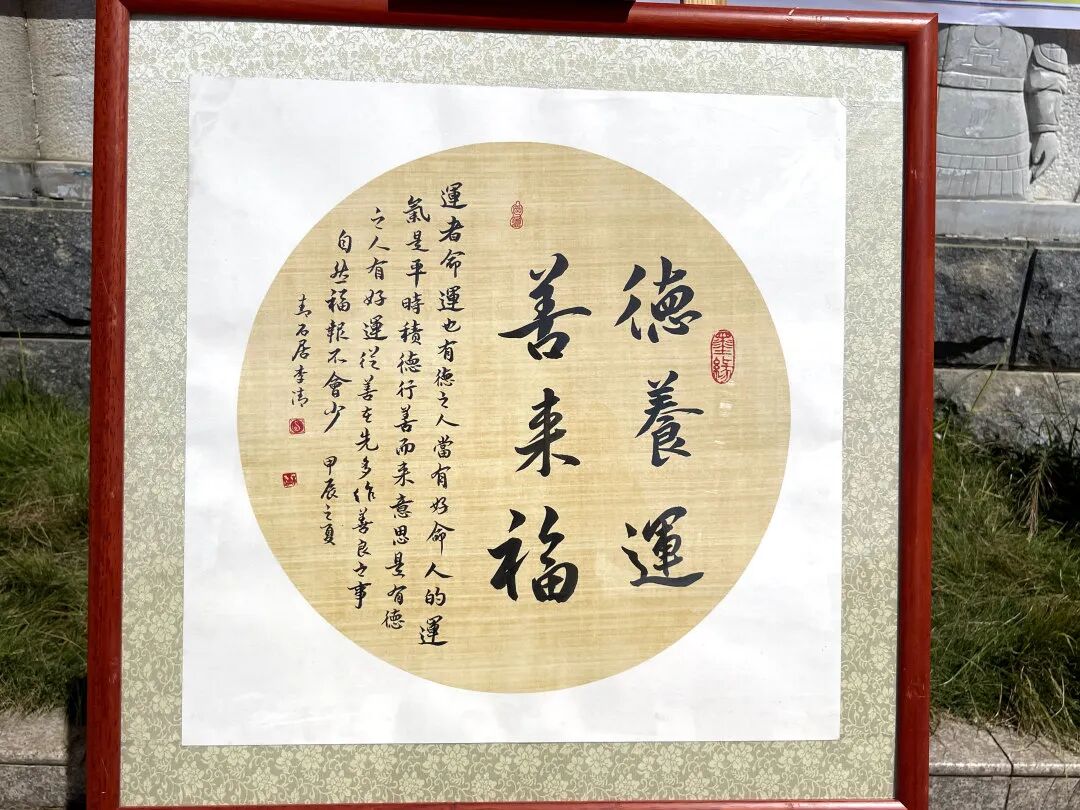 墨緣
徳養運
善来福
運者命運也有徳之人當有好命人的運
氣是平時積徳行善而来意思是有徳
之人有好運從善在先多作善良之事
自然福報不會少 甲辰之夏
青石居李清